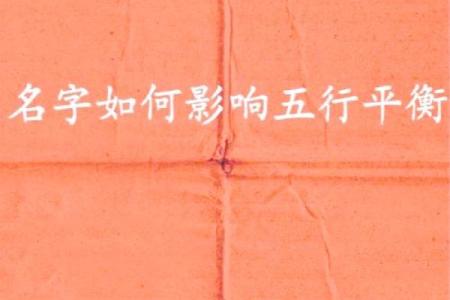 名字如何影响五行平衡